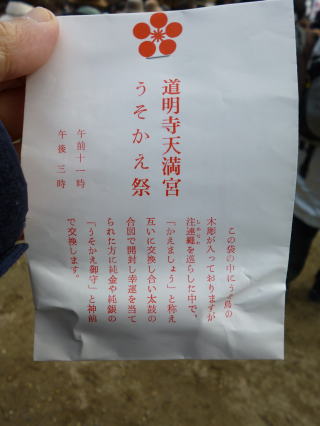 道明寺天満宮
うそかえ祭
午前十一時
午後三時
この袋の中にうそ鳥の
木彫が入っておりますが
注連縄を巡らした中で、
「かえましょう」と称え
互いに交換し合い太鼓の
合図で開封し幸運を当て
られた方に純金や純銀の
「うそかえ御守」と神前
で交換します。